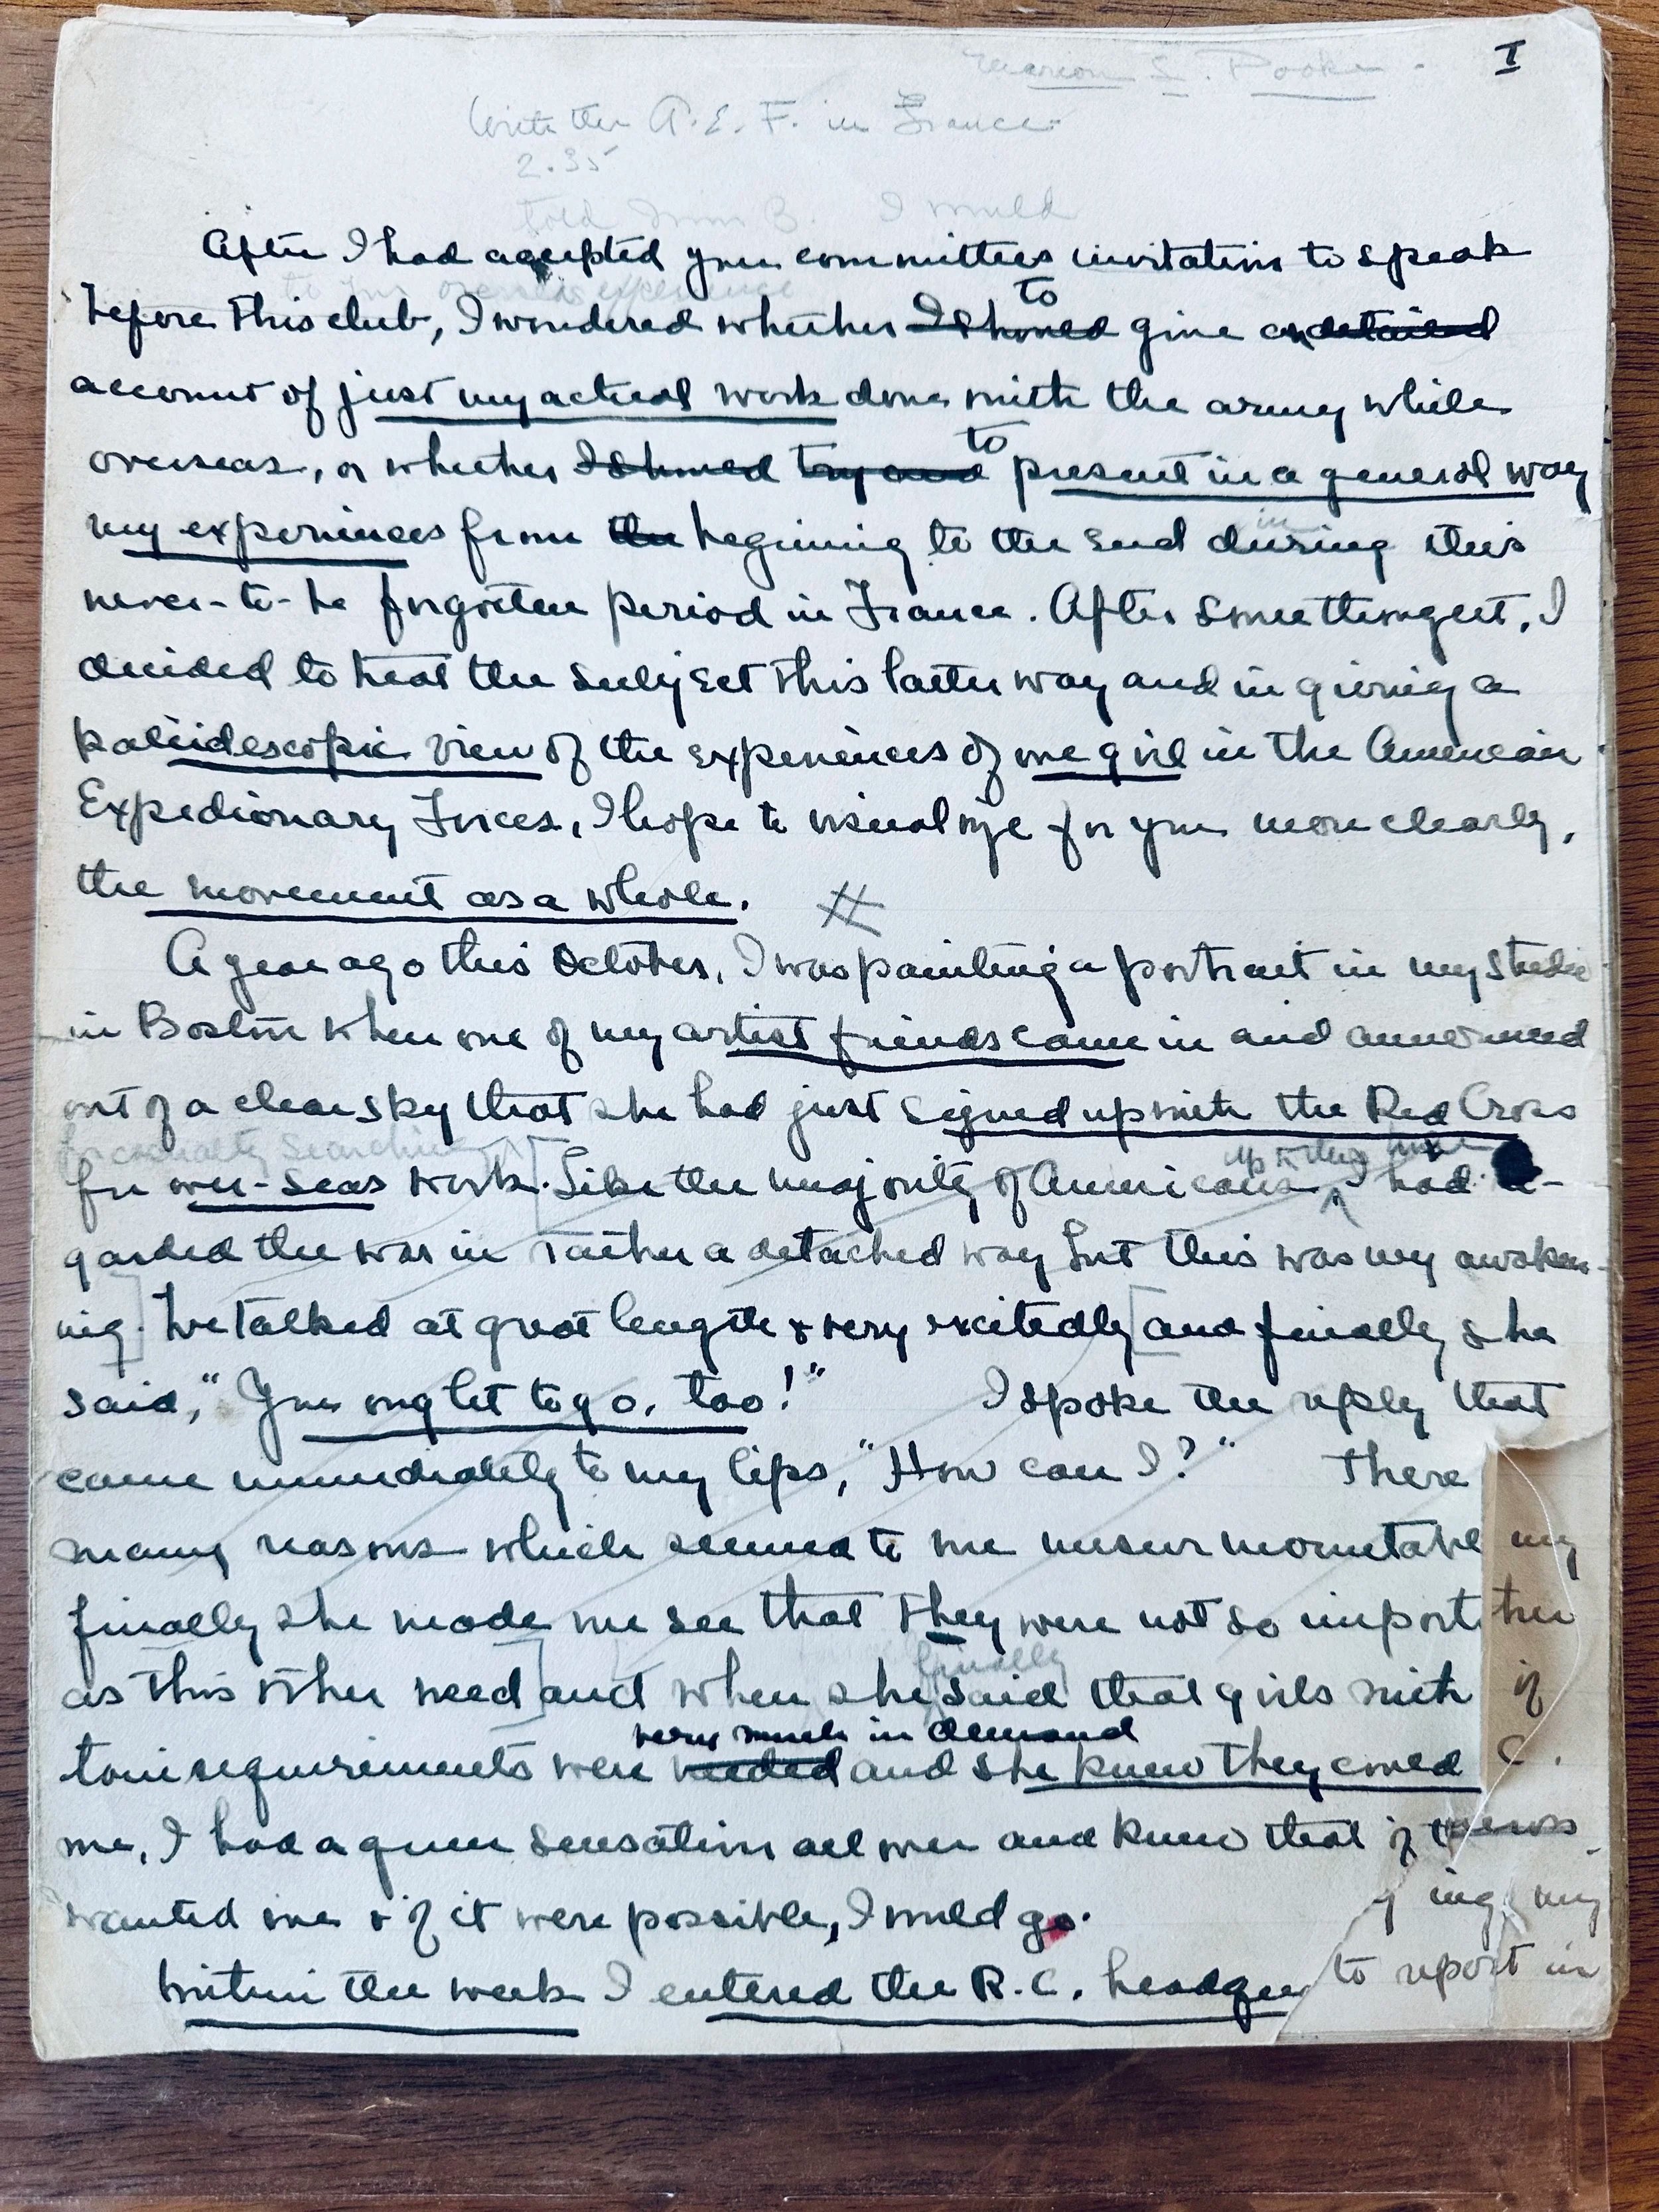 I
Marion L. Pooke.
With the A.E.F. in France.
2.35
told B. I would
After I had accepted your committees invitation to speak
to our overseas experience
to
before this club, I wondered whether I should give an detailed
account of just my actual work done with the army while
to
overseas, or whether I should try and present in a general way
in
my experiences from the beginning to the end during this
never-to-be forgotten period in France. After some thought, I
decided to treat the subject this latter way and in giving a
kaleidescopic view of the experiences of one girl in the American
Expedionary Forces, I hope to visualize for you more clearly,
the movement as a whole. #
A year ago this October, I was painting a portrait in my studio
in Boston when one of my artist friends came in and announced
out of a clear sky that she had just signed up with the Red Cross
for casualty searching up to this time
for over-seas work. [Like the majority of Americans ^ I had re-
garded the war in rather a detached way but this was my awaken-
ing.] We talked at great length & very excitedly [and finally she
said, "You ought to go, too!" I spoke the reply that
came immediately to my lips, "How can I?" There
many reasons which seemed to me unsurmountable my
finally she made me see that they were not so import
finally
as this other need] and when she said that girls with if
very much in demand
requirements were needed and she knew they could C.
me, I had a queer sensation all over and knew that if
wanted me & if it were possible, I would go. ing my
Within the week I entered the R.C. headqu to report in